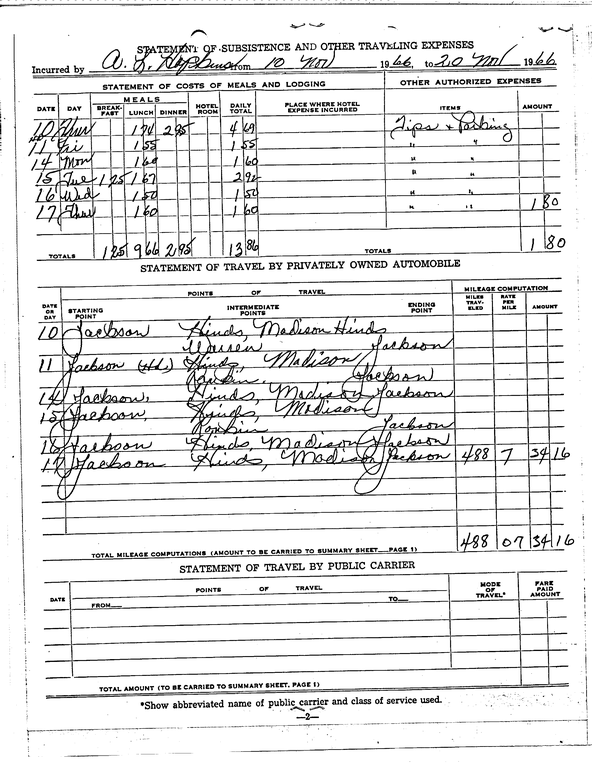 STATEMENT OF SUBSISTENCE AND OTHER TRAVELING EXPENSES
Incurred by A. L. Hopkins from 10 Nov 1966 to 20 Nov 1966
STATEMENT OF COSTS OF MEALS AND LODGING OTHER AUTHORIZED EXPENSES
DATE DAY MEALS BREAK-FAST LUNCH DINNER HOTEL ROOM DAILY TOTAL PLACE WHERE HOTEL EXPENSE INCURRED ITEMS AMOUNT
10 Thur 1 74 2 95 4 69 Tips & Parking
11 Fri 1 55 1 55 " "
14 Mon 1 60 1 60 " "
15 Tue 1 25 1 67 2 92 " "
16 Wed 1 50 1 50 " "
17 Thur 1 60 1 60 " " 1 80
TOTALS 1 25 9 66 2 95 13 86 TOTALS 1 80
STATEMENT OF TRAVEL BY PRIVATELY OWNED AUTOMOBILE
DATE OR DAY POINTS OF TRAVEL MILEAGE COMPUTATION
STARTING POINT INTERMEDIATE POINTS ENDING POINT MILES TRAV-ELED RATE PER MILE AMOUNT
10 Jackson Hinds, Madison Hinds
Warren Jackson
11 Jackson (Hd.) Hinds, Madison,
Rankin Jackson
14 Jackson, Hinds, Madison Jackson
15 Jackson, Hinds, Madison
Rankin Jackson
16 Jackson Hinds, Madison Jackson
17 Jackson Hinds, Madison Jackson 488 7 34 16
TOTAL MILEAGE COMPUTATIONS (AMOUNT TO BE CARRIED TO SUMMARY SHEET PAGE 1) 488 07 34 16
STATEMENT OF TRAVEL BY PUBLIC CARRIER
DATE POINTS OF TRAVEL MODE OF TRAVEL* FARE PAID AMOUNT
FROM TO
TOTAL AMOUNT (TO BE CARRIED TO SUMMARY SHEET, PAGE 1)
*Show abbreviated name of public carrier and class of service used.
—2—